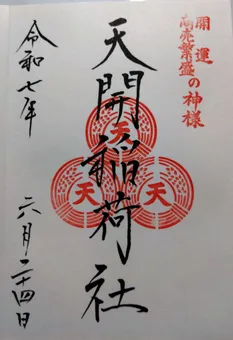 開運
商売繁盛の神様
天開稲荷社
天
天
天
令和七年
六月二十四日